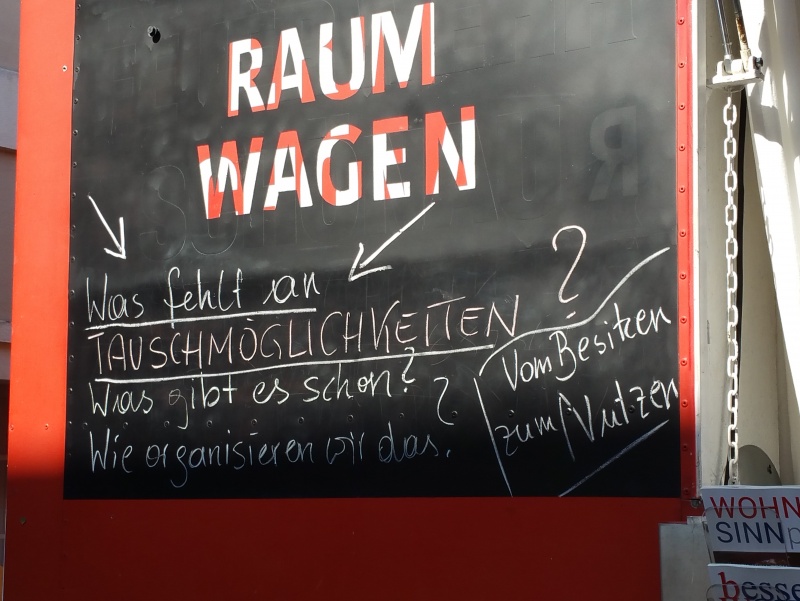 RAUM
WAGEN
Was fehlt an
TAUSCHMÖGLICHKEITEN ?
Was gibt es schon?
Wie organisieren wir das.?
Vom Besitzen
zum Nutzen
WOHN
SINN
besse